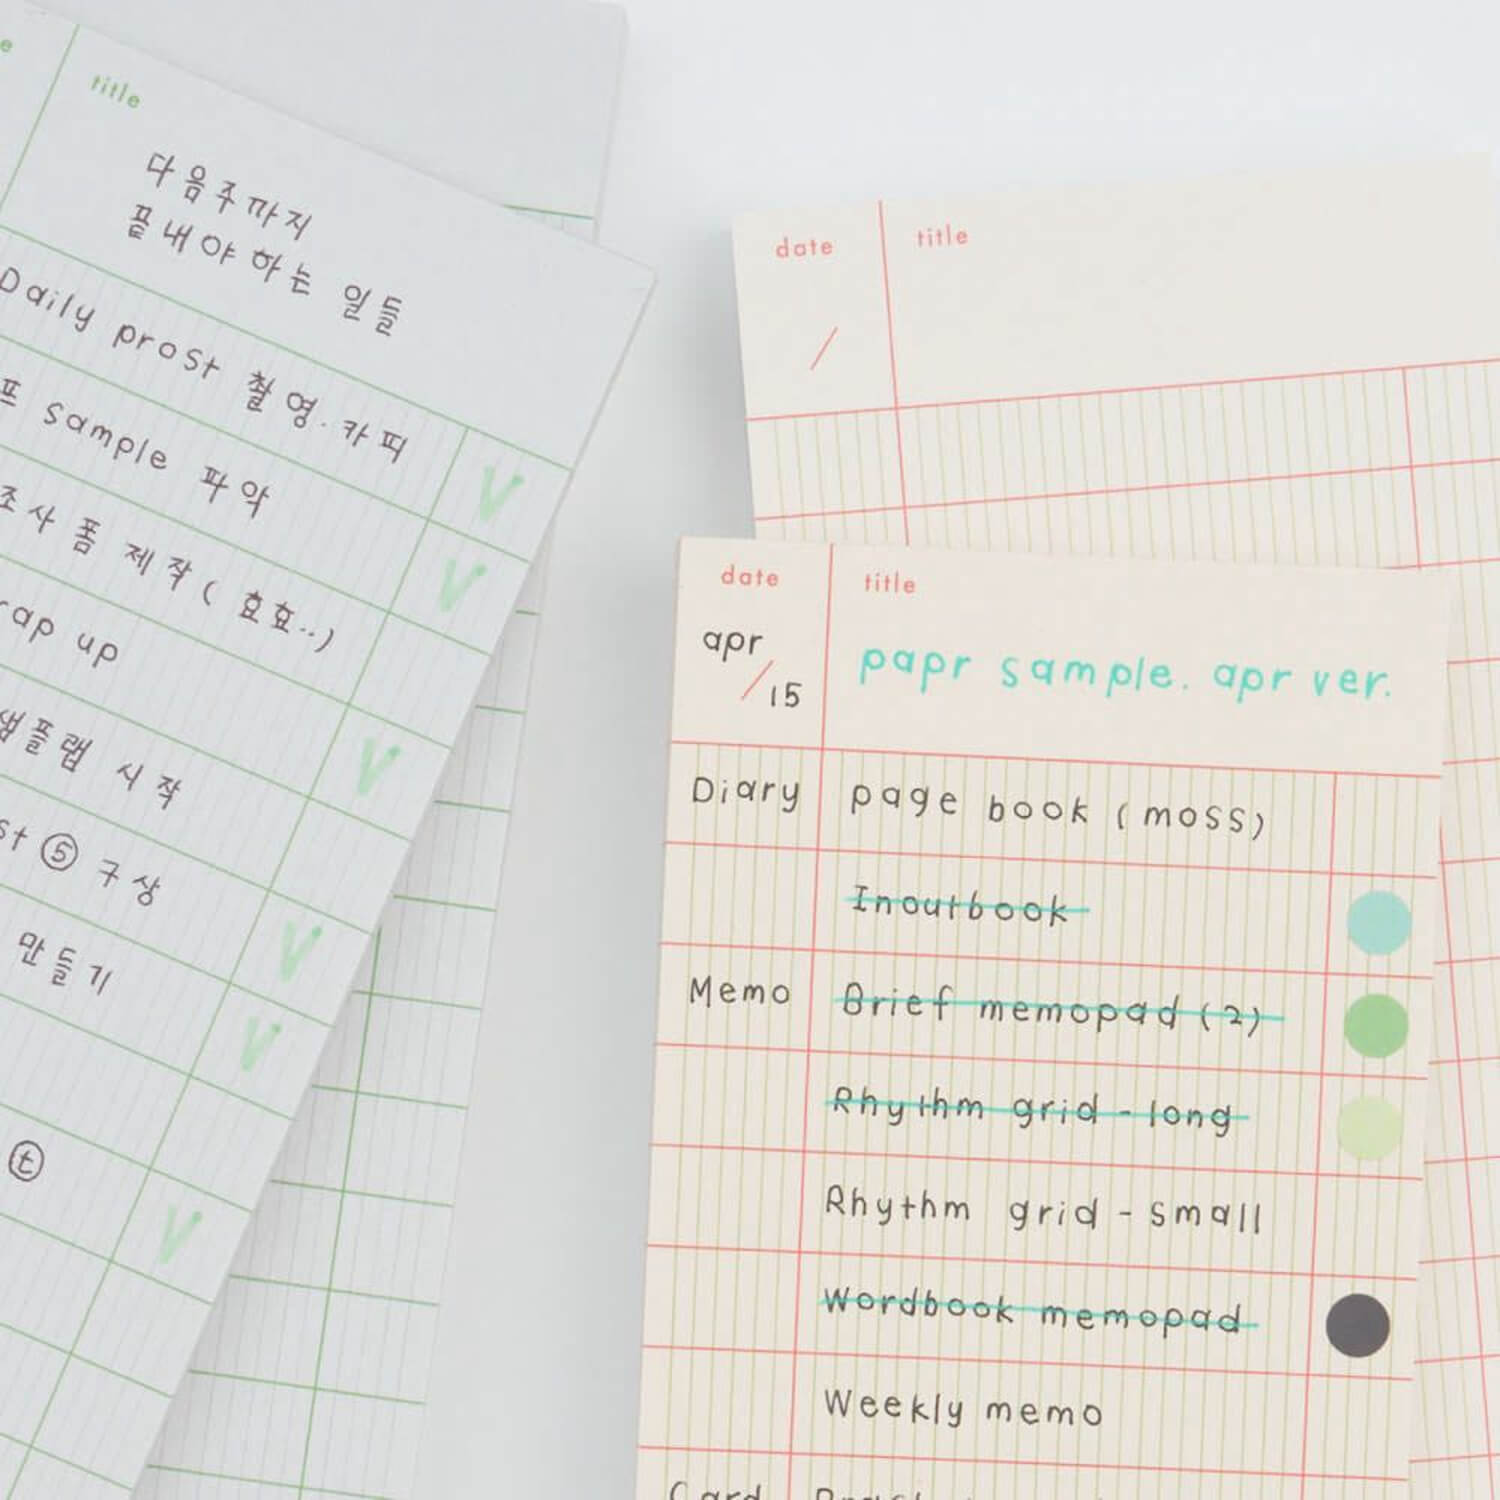 title
다음주까지
끝내야하는 일들
Daily prost 촬영.카피
sample 파악
조사 폼 제작( 효효..)
up
샘플랩 시작
⑤ 구상
만들기
ⓣ
date title
/
date title
apr / 15 papr sample. apr ver.
Diary page book (moss)
Inoutbook
Memo Brief memopad (2)
Rhythm grid - long
Rhythm grid - small
Wordbook memopad
Weekly memo
Card